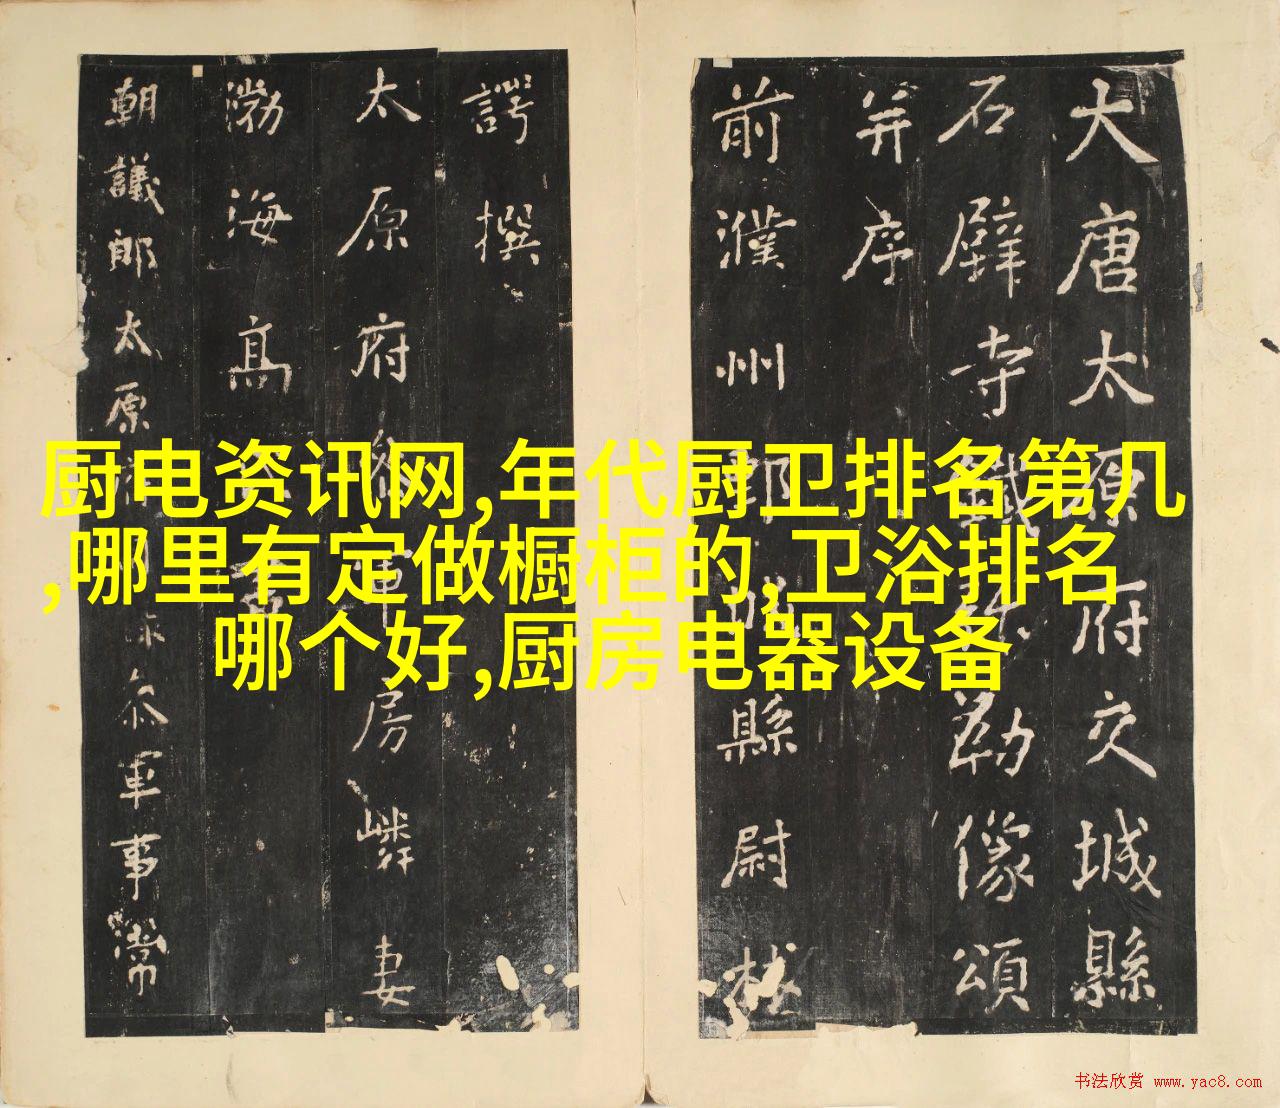 大唐太原府交城縣
石壁寺鐵弥勒像頌
并序
前濮州鄄城縣尉林
諤撰
太原府參軍房嶙妻
渤海高
朝議郎太原
参軍事常
厨电资讯网,年代厨卫排名第几
,哪里有定做橱柜的,卫浴排名
哪个好,厨房电器设备
书法欣赏 www.yac8.com